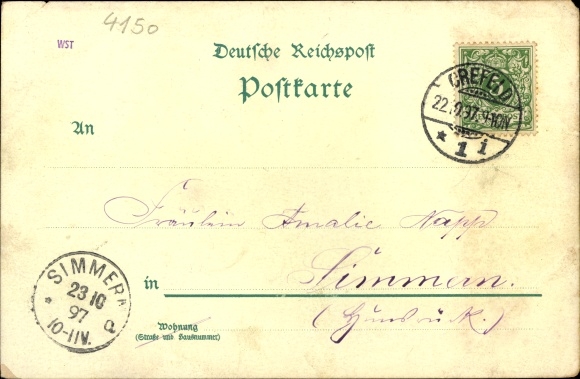 4150
WST
Deutsche Reichspost
Postkarte
CREFELD
22.10.97.9-10N
* 1 i
An
Fräulein Amalie Napp
in Simmern.
(Hunsrück.)
SIMMERN
23 10
97
10-11V.
Wohnung
(Straße und Hausnummer)